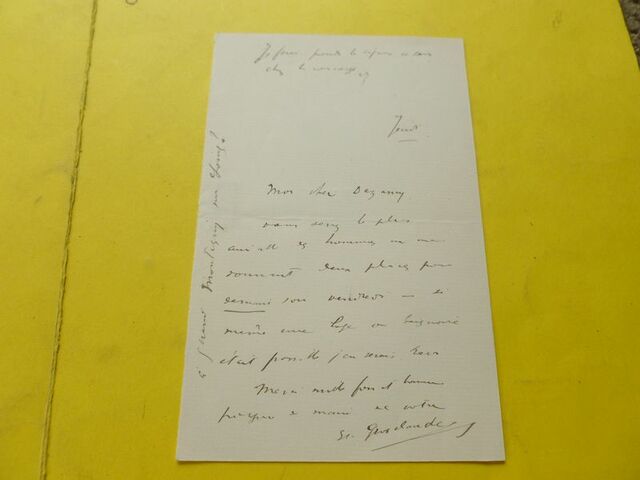 Je ferai prendre la réponse ce soir
chez le concierge
Jeudi
Mon cher Degany
vous serez le plus
aimable des hommes en me
donnant deux places pour
demain soir vendredi — si
même une loge ou baignoire
était possible j'en serais
Merci mille fois et bonne
poignée de main de votre
Et. Grosclaude
Montigny sur Loing